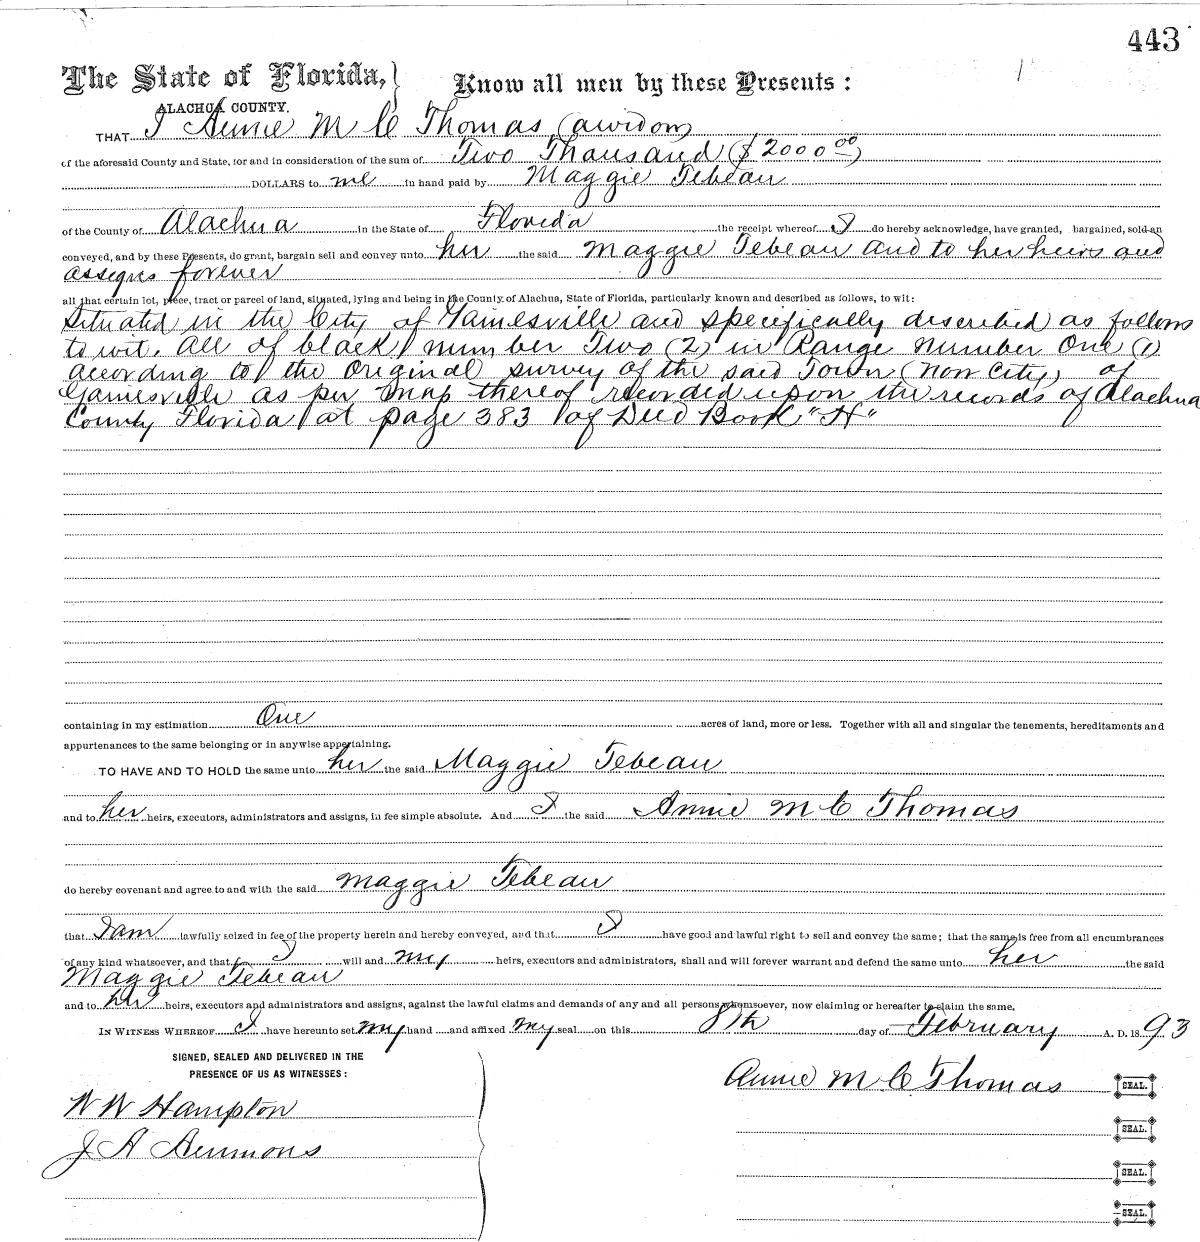 443
The State of Florida, } Know all men by these Presents :
ALACHUA COUNTY.
THAT I Annie M C Thomas (a widow)
of the aforesaid County and State, for and in consideration of the sum of Two Thousand ($2000 00)
DOLLARS to me in hand paid by Maggie Tebeau
of the County of Alachua in the State of Florida the receipt whereof I do hereby acknowledge, have granted, bargained, sold an
conveyed, and by these Presents, do grant, bargain sell and convey unto her the said Maggie Tebeau and to her heirs and
assigns forever
all that certain lot, piece, tract or parcel of land, situated, lying and being in the County of Alachua, State of Florida, particularly known and described as follows, to wit:
Situated in the City of Gainesville and specifically described as follows
to wit. All of block number Two (2) in Range Number One (1)
according to the Original survey of the said Town (now City) of
Gainesville as per map thereof recorded upon the records of Alachua
County Florida at page 383 of Deed Book "H"
containing in my estimation One acres of land, more or less. Together with all and singular the tenements, hereditaments and
appurtenances to the same belonging or in anywise appertaining.
TO HAVE AND TO HOLD the same unto her the said Maggie Tebeau
and to her heirs, executors, administrators and assigns, in fee simple absolute. And I the said Annie M C Thomas
do hereby covenant and agree to and with the said Maggie Tebeau
that I am lawfully seized in fee of the property herein and hereby conveyed, and that I have good and lawful right to sell and convey the same; that the same is free from all encumbrances
of any kind whatsoever, and that I will and my heirs, executors and administrators, shall and will forever warrant and defend the same unto her the said
Maggie Tebeau
and to her heirs, executors and administrators and assigns, against the lawful claims and demands of any and all persons whomsoever, now claiming or hereafter to claim the same.
IN WITNESS WHEREOF I have hereunto set my hand and affixed my seal on this 8th day of February A. D. 1893
SIGNED, SEALED AND DELIVERED IN THE
PRESENCE OF US AS WITNESSES :
Annie M C Thomas SEAL.
W W Hampton
SEAL.
J A Ammons
SEAL.
SEAL.